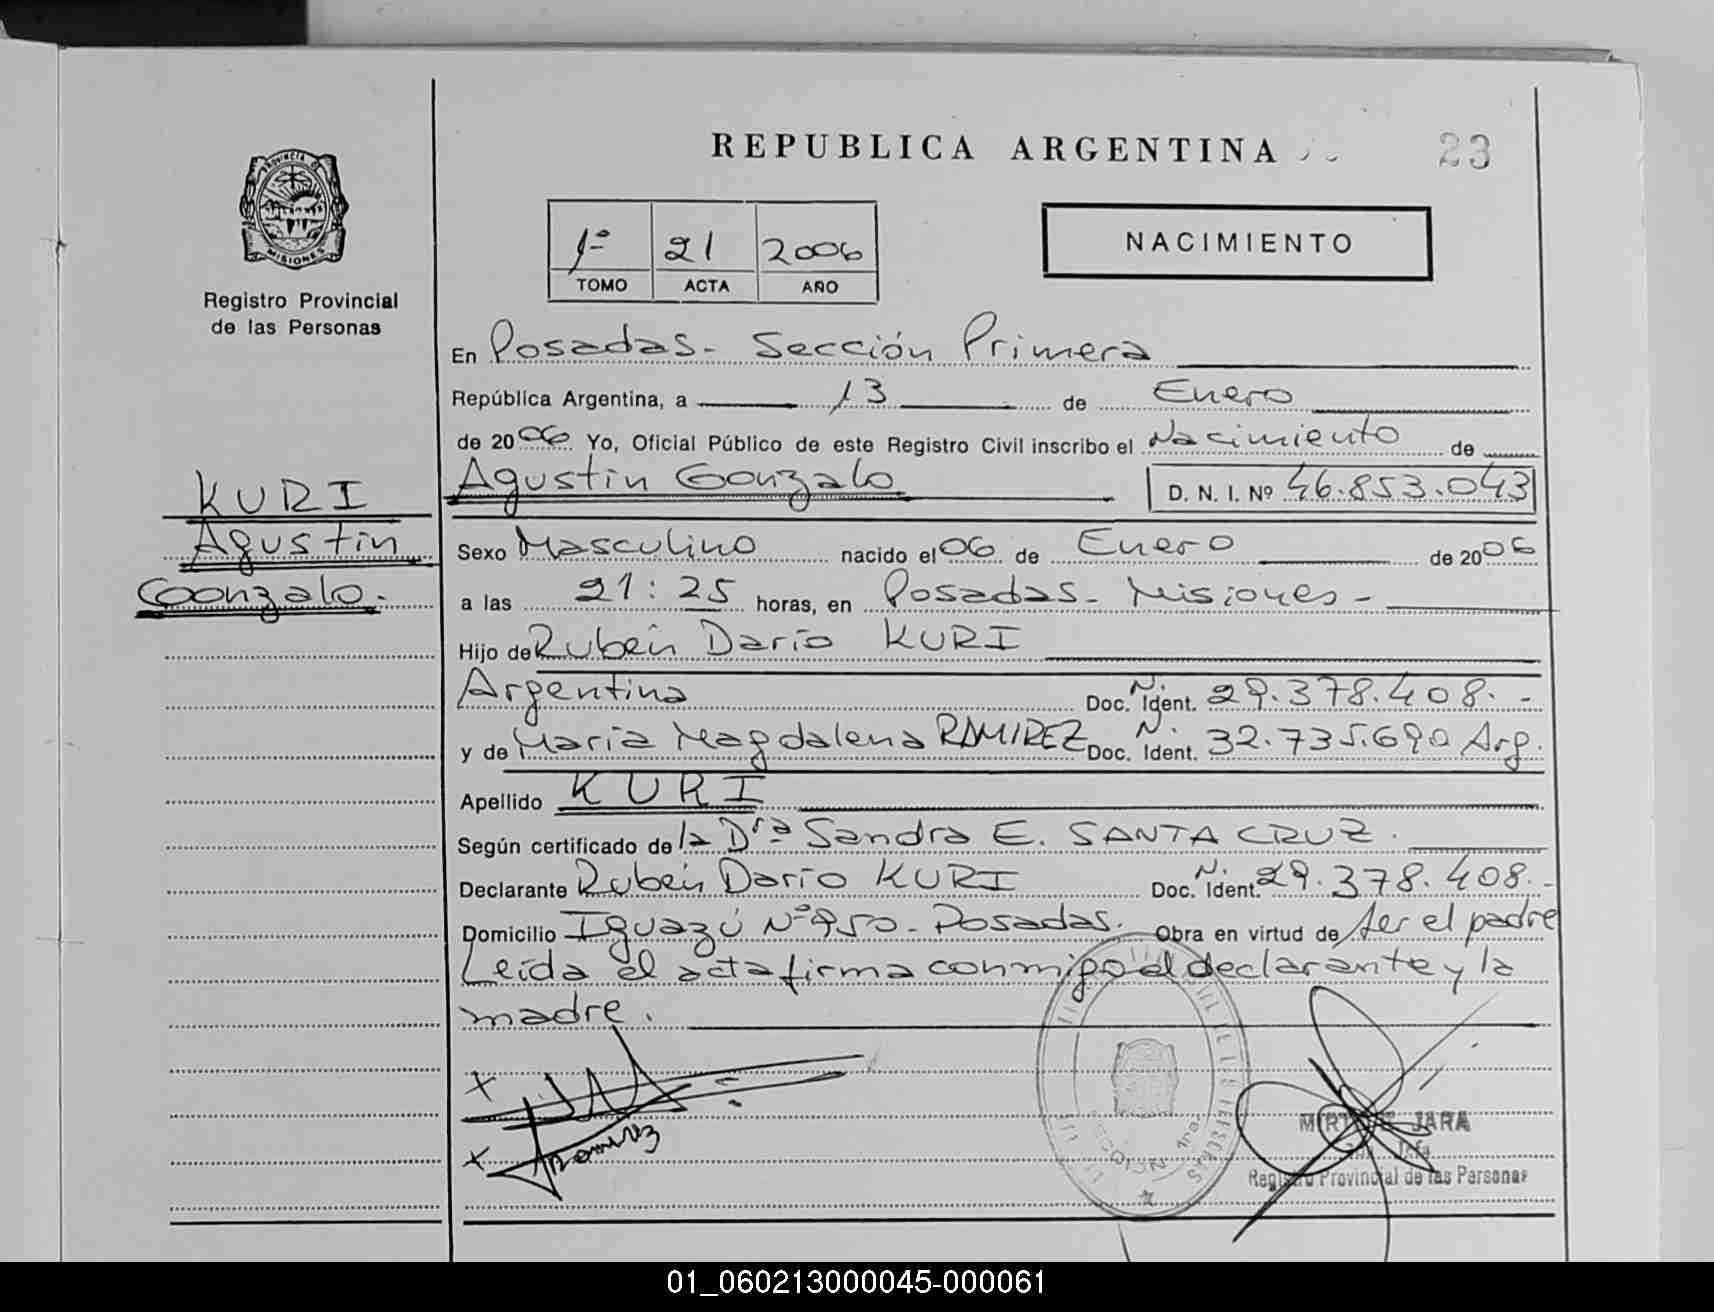 REPUBLICA ARGENTINA
23
PROVINCIA D
MISIONES
Registro Provincial
de las Personas
1º 21 2006
TOMO ACTA AÑO
NACIMIENTO
En Posadas - Sección Primera
República Argentina, a 13 de Enero
de 2006 Yo, Oficial Público de este Registro Civil inscribo el Nacimiento de
Agustín Gonzalo D. N. I. Nº 46.853.043
KURI
Agustín
Gonzalo.
Sexo Masculino nacido el 06 de Enero de 2006
a las 21:25 horas, en Posadas - Misiones -
Hijo de Rubén Darío KURI
Argentina Doc. N. Ident. 29.378.408. -
y de María Magdalena RAMIREZ Doc. N. Ident. 32.735.690 Arg.
Apellido KURI
Según certificado de la Dra Sandra E. SANTA CRUZ.
Declarante Rubén Darío KURI Doc. N. Ident. 29.378.408. -
Domicilio Iguazú Nº 950 - Posadas. Obra en virtud de ser el padre
Leída el acta firma conmigo el declarante y la
madre.
X
X Ramirez
SECCION 1ra.
JARA
Jefa
Registro Provincial de las Personas
01_060213000045-000061